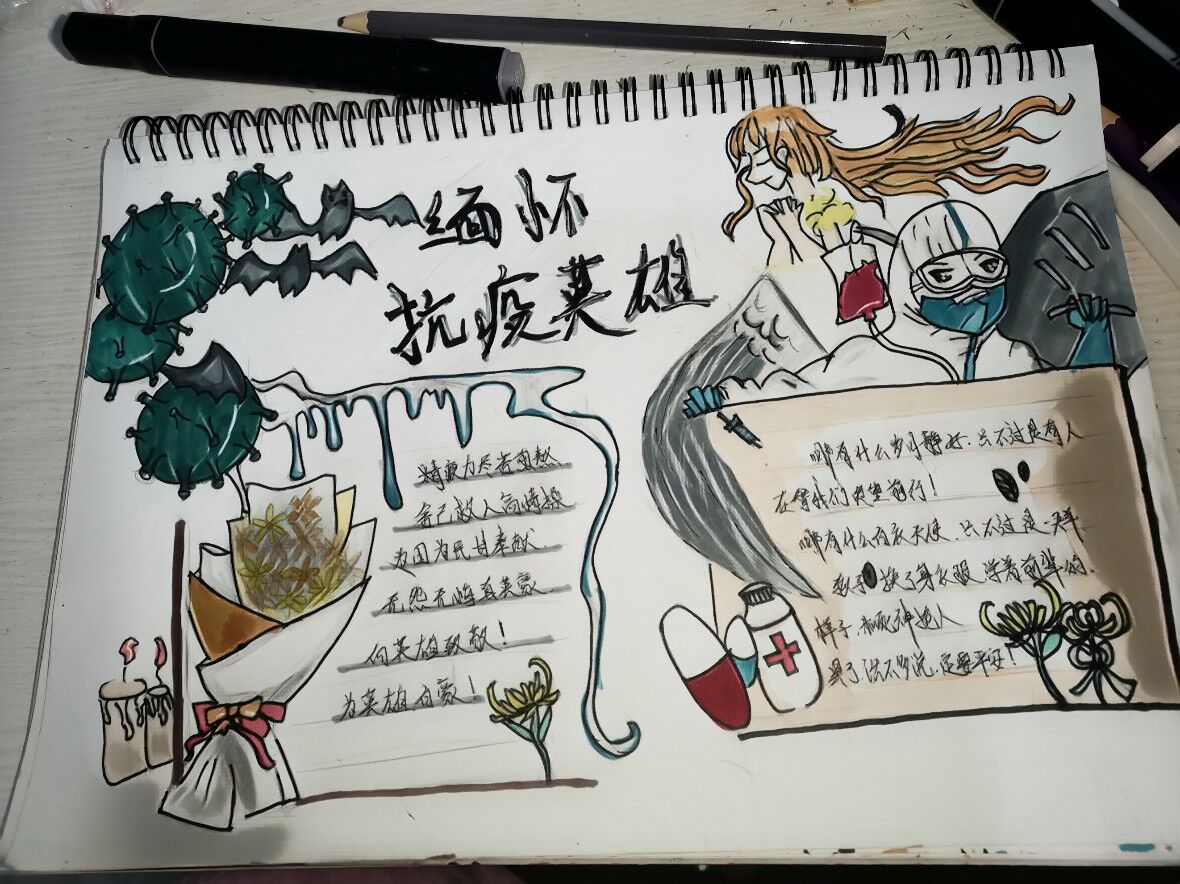 缅怀
抗疫英雄
精疲力尽若
舍己救人高情操
为国为民甘奉献
无怨无悔真英豪
向英雄致敬！
为英雄自豪！
哪有什么岁月静好，只不过是有人
在替我们负重前行！
哪有什么白衣天使，只不过是一群
孩子换了身衣服，学着前辈的
样子，和死神抢人
累了，话不多说，定要平安！